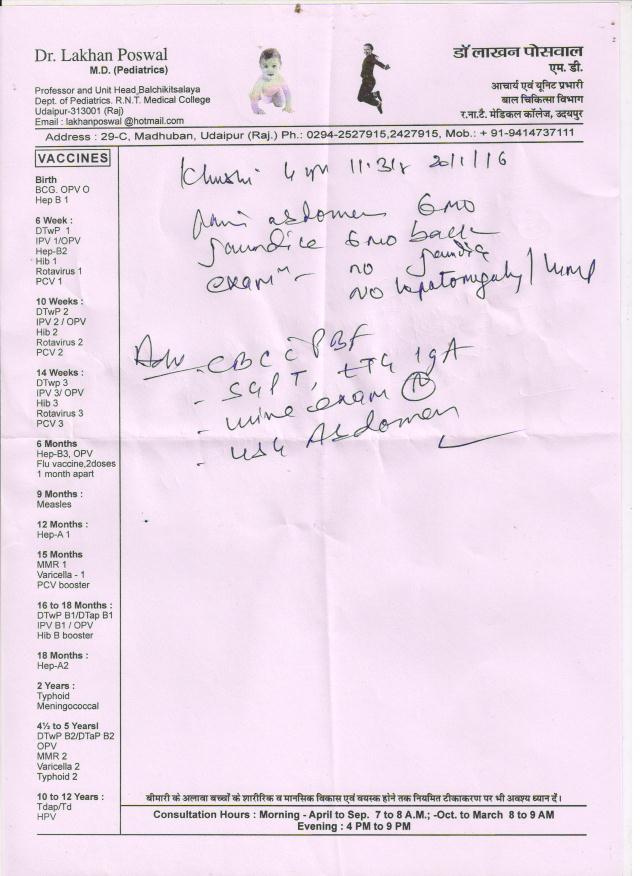 Dr. Lakhan Poswal
M.D. (Pediatrics)
Professor and Unit Head,Balchikitsalaya
Dept. of Pediatrics. R.N.T. Medical College
Udaipur-313001 (Raj)
Email : lakhanposwal @hotmail.com
डॉ लाखन पोसवाल
एम. डी.
आचार्य एवं यूनिट प्रभारी
बाल चिकित्सा विभाग
र.ना.टै. मेडिकल कॉलेज, उदयपुर
Address : 29-C, Madhuban, Udaipur (Raj.) Ph.: 0294-2527915,2427915, Mob.: + 91-9414737111
VACCINES
Birth
BCG. OPV O
Hep B 1
6 Week :
DTwP 1
IPV 1/OPV
Hep-B2
Hib 1
Rotavirus 1
PCV 1
10 Weeks :
DTwP 2
IPV 2 / OPV
Hib 2
Rotavirus 2
PCV 2
14 Weeks :
DTwp 3
IPV 3/ OPV
Hib 3
Rotavirus 3
PCV 3
6 Months
Hep-B3, OPV
Flu vaccine,2doses
1 month apart
9 Months :
Measles
12 Months :
Hep-A 1
15 Months
MMR 1
Varicella - 1
PCV booster
16 to 18 Months :
DTwP B1/DTap B1
IPV B1 / OPV
Hib B booster
18 Months :
Hep-A2
2 Years :
Typhoid
Meningococcal
4½ to 5 Yearsl
DTwP B2/DTaP B2
OPV
MMR 2
Varicella 2
Typhoid 2
10 to 12 Years :
Tdap/Td
HPV
Khushi 4 yr 20/1/16
pain abdomen 6 mo
Jaundice 6 mo back
exam<sup>n</sup> - no jaundice
No hepatomegaly / lump
Adv - CBC c̄ PBF
- SGPT, tTG IgA
- urine exam (N)
- USG Abdomen
बीमारी के अलावा बच्चों के शारीरिक व मानसिक विकास एवं वयस्क होने तक नियमित टीकाकरण पर भी अवश्य ध्यान दें।
Consultation Hours : Morning - April to Sep. 7 to 8 A.M.; -Oct. to March 8 to 9 AM
Evening : 4 PM to 9 PM